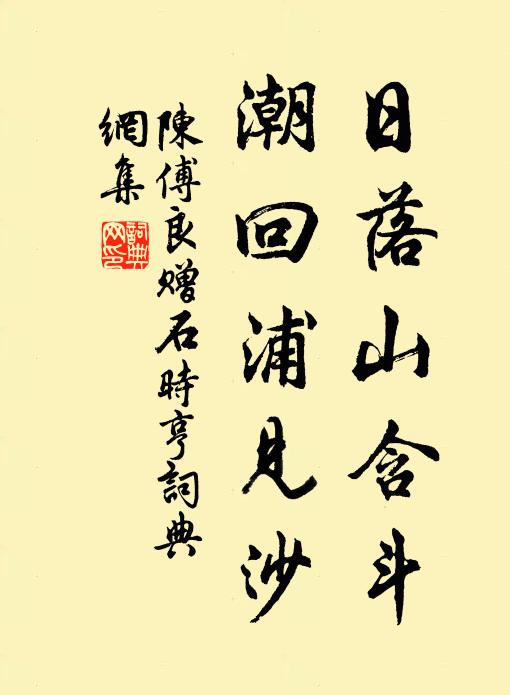 日落山含斗
潮回浦見沙
陳傅良贈石時亨詞典
網集
詞典網印